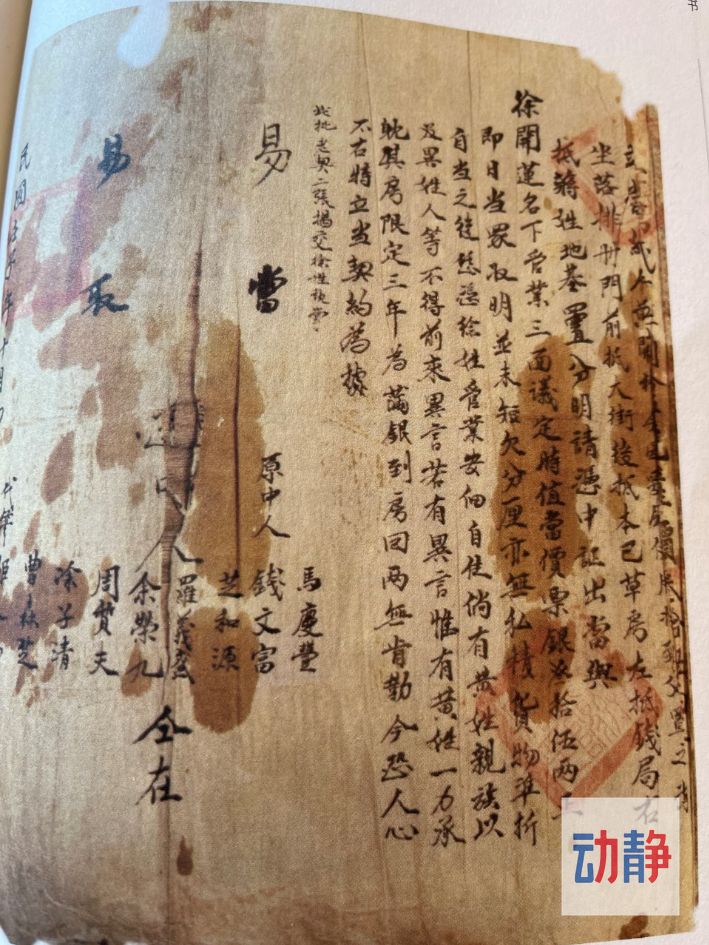 立當
坐落排册門前抵大街後抵本已草房左抵錢局右
抵蔣姓地基四置分明請憑中証出當與
徐開蓮名下管業三面議定時值當價票銀拾伍兩正
即日當眾取明並未短欠分厘亦無私積貨物準折
自當之後悉憑徐姓管業安佃自住倘有黃姓親族以
及異姓人等不得前來異言若有異言惟有黃姓一力承
躭其房限定三年為滿銀到房回兩無肯勒今恐人心
不古特立當契約為據
此批老契二張揭交徐姓執
易當
原中人
馬慶豐
錢文富
芝和源
羅義
余榮九
周贊夫
涂子清
曹森芝
仝在
易取
民國壬子年十月
代筆
动静
书